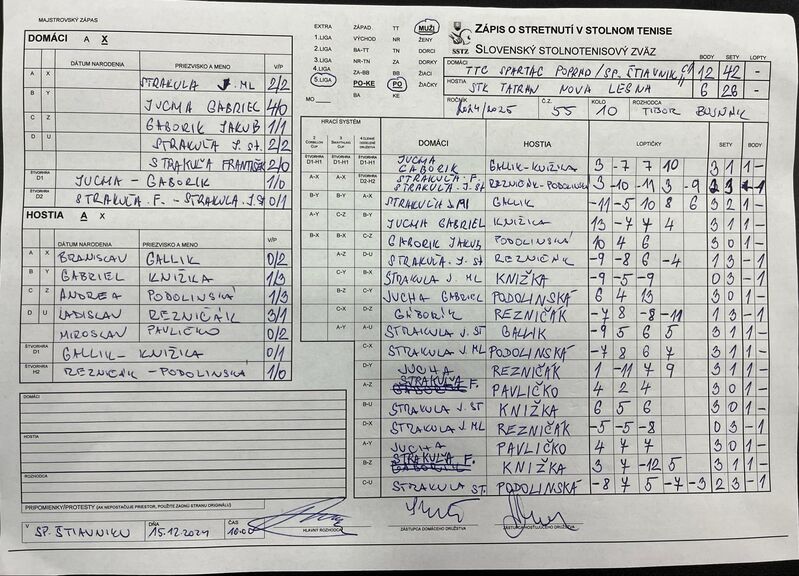 MAJSTROVSKÝ ZÁPAS
DOMÁCI A X
DÁTUM NARODENIA PRIEZVISKO A MENO V/P
A X STRAKULA J. ML 2/2
B Y JUCMA GABRIEL 4/0
C Z GABORIK JAKUB 1/1
D U STRAKULA J. ST. 2/2
STRAKUĽA FRANTIŠEK 2/0
ŠTVORHRA D1 JUCMA - GABORIK 1/0
D2 STRAKUĽA. F. - STRAKULA. J.ST 0/1
HOSTIA A X
DÁTUM NARODENIA PRIEZVISKO A MENO V/P
A X BRANISLAV GALLIK 0/2
B Y GABRIEL KNIŽKA 1/3
C Z ANDREA PODOLINSKÁ 1/3
D U LADISLAV REZNIČÁK 3/1
MIROSLAV PAVLIČKO 0/2
ŠTVORHRA D1 GALLIK - KNIŽKA 0/1
ŠTVORHRA H2 REZNIČÁK - PODOLINSKÁ 1/0
DOMÁCI
HOSTIA
ROZHODCA
PRIPOMIENKY/PROTESTY (AK NEPOSTAČUJE PRIESTOR, POUŽITE ZADNÚ STRANU ORIGINÁLU)
V SP. ŠTIAVNIKU DŇA 15.12.2024 ČAS 16:00 HLAVNÝ ROZHODCA
EXTRA ZÁPAD TT MUŽI
1.LIGA VÝCHOD NR ŽENY
2.LIGA BA-TT TN DORCI
3.LIGA NR-TN ZA DORKY
4.LIGA ZA-BB BB ŽIACI
5.LIGA PO-KE PO ŽIAČKY
MO BA KE
SSTZ
ZÁPIS O STRETNUTÍ V STOLNOM TENISE
SLOVENSKÝ STOLNOTENISOVÝ ZVÄZ
BODY SETY LOPTY
DOMÁCI TTC SPARTAC POPRAD/SP. ŠTIAVNIK 12 42 -
HOSTIA STK TATRAN NOVA LESNA 6 26 -
ROČNÍK 2024/2025 Č.Z. 55 KOLO 10 ROZHODCA TIBOR
HRACÍ SYSTÉM
DOMÁCI HOSTIA LOPTIČKY SETY BODY
D1-H1 D1-H1 D1-H1 JUCMA GABORIK GALLIK-KNIŽKA 3 -7 7 10 3 1 1 -
A-X A-X D2-H2 STRAKUĽA. F. STRAKUĽA. J.ST REZNIČÁK-PODOLINSKÁ 3 -10 -11 3 -9 2 3 - 1
B-Y B-Y A-X STRAKULA J ML GALLIK -11 -5 10 8 6 3 2 1 -
A-Y C-Z B-Y JUCMA GABRIEL KNIŽKA 13 -7 7 4 3 1 1 -
B-X B-X C-Z GABORIK JAKUB PODOLINSKÁ 10 4 6 3 0 1 -
A-Z D-U STRAKULA J. ST REZNIČÁK -9 -8 6 -4 1 3 - 1
C-Y B-X STRAKULA J. ML KNIŽKA -9 -5 -9 0 3 - 1
B-Z C-Y JUCHA GABRIEL PODOLINSKÁ 6 4 13 3 0 1 -
C-X D-Z GÁBORIK REZNIČÁK -7 8 -8 -11 1 3 - 1
A-Y A-U STRAKULA J. ST GALLIK -9 5 6 5 3 1 1 -
C-X STRAKULA J. ML PODOLINSKÁ -7 8 6 7 3 1 1 -
D-Y JUCHA REZNIČÁK 1 -11 7 9 3 1 1 -
A-Z STRAKUĽA F. PAVLIČKO 4 2 4 3 0 1 -
B-U STRAKULA J. ST KNIŽKA 6 5 6 3 0 1 -
D-X STRAKULA J. ML REZNIČÁK -5 -5 -8 0 3 - 1
A-Y JUCHA PAVLIČKO 4 7 7 3 0 1 -
B-Z STRAKUĽA F. KNIŽKA 3 7 -12 5 3 1 1 -
C-U STRAKULA ST. PODOLINSKÁ -8 7 5 -7 -3 2 3 - 1
ZÁSTUPCA DOMÁCEHO DRUŽSTVA ZÁSTUPCA HOSŤUJÚCEHO DRUŽSTVA